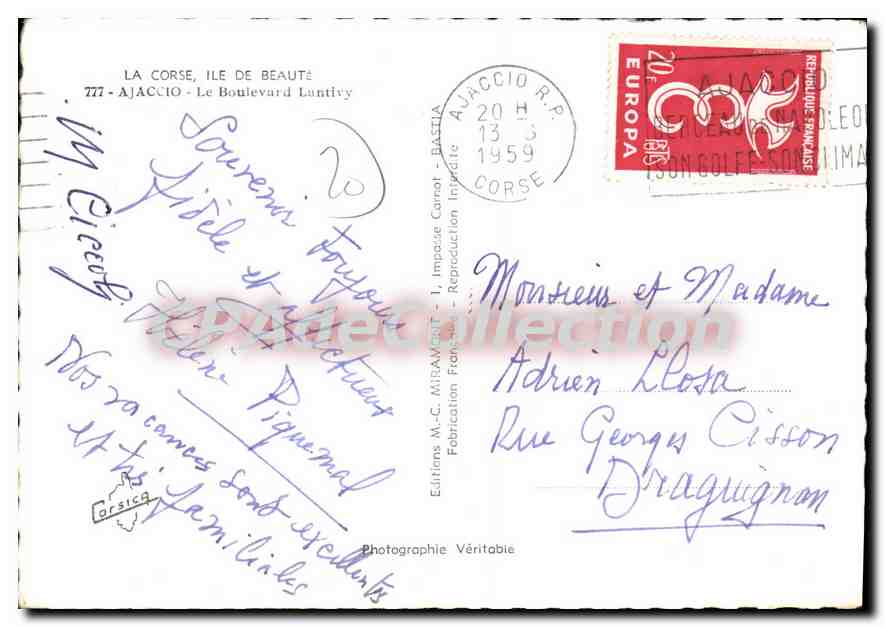 LA CORSE, ILE DE BEAUTÉ
777 - AJACCIO - Le Boulevard Lantivy
Souvenir toujours
fidèle et affectueux
Hélène Piquemal
Nos vacances sont excellentes
et très familiales
20
Corsica
Editions M.-C. MIRAMONT - 1, Impasse Carnot - BASTIA
Fabrication Française - Reproduction Interdite
Photographie Véritable
AJACCIO R.P.
20 H
13
1959
CORSE
AJACCIO
BERCEAU DE NAPOLEON
SON GOLFE-SON CLIMA
REPUBLIQUE FRANÇAISE
20F
PTS
EUROPA
Monsieur et Madame
Adrien Llosa
Rue Georges Cisson
Draguignan
CPAdeCollection